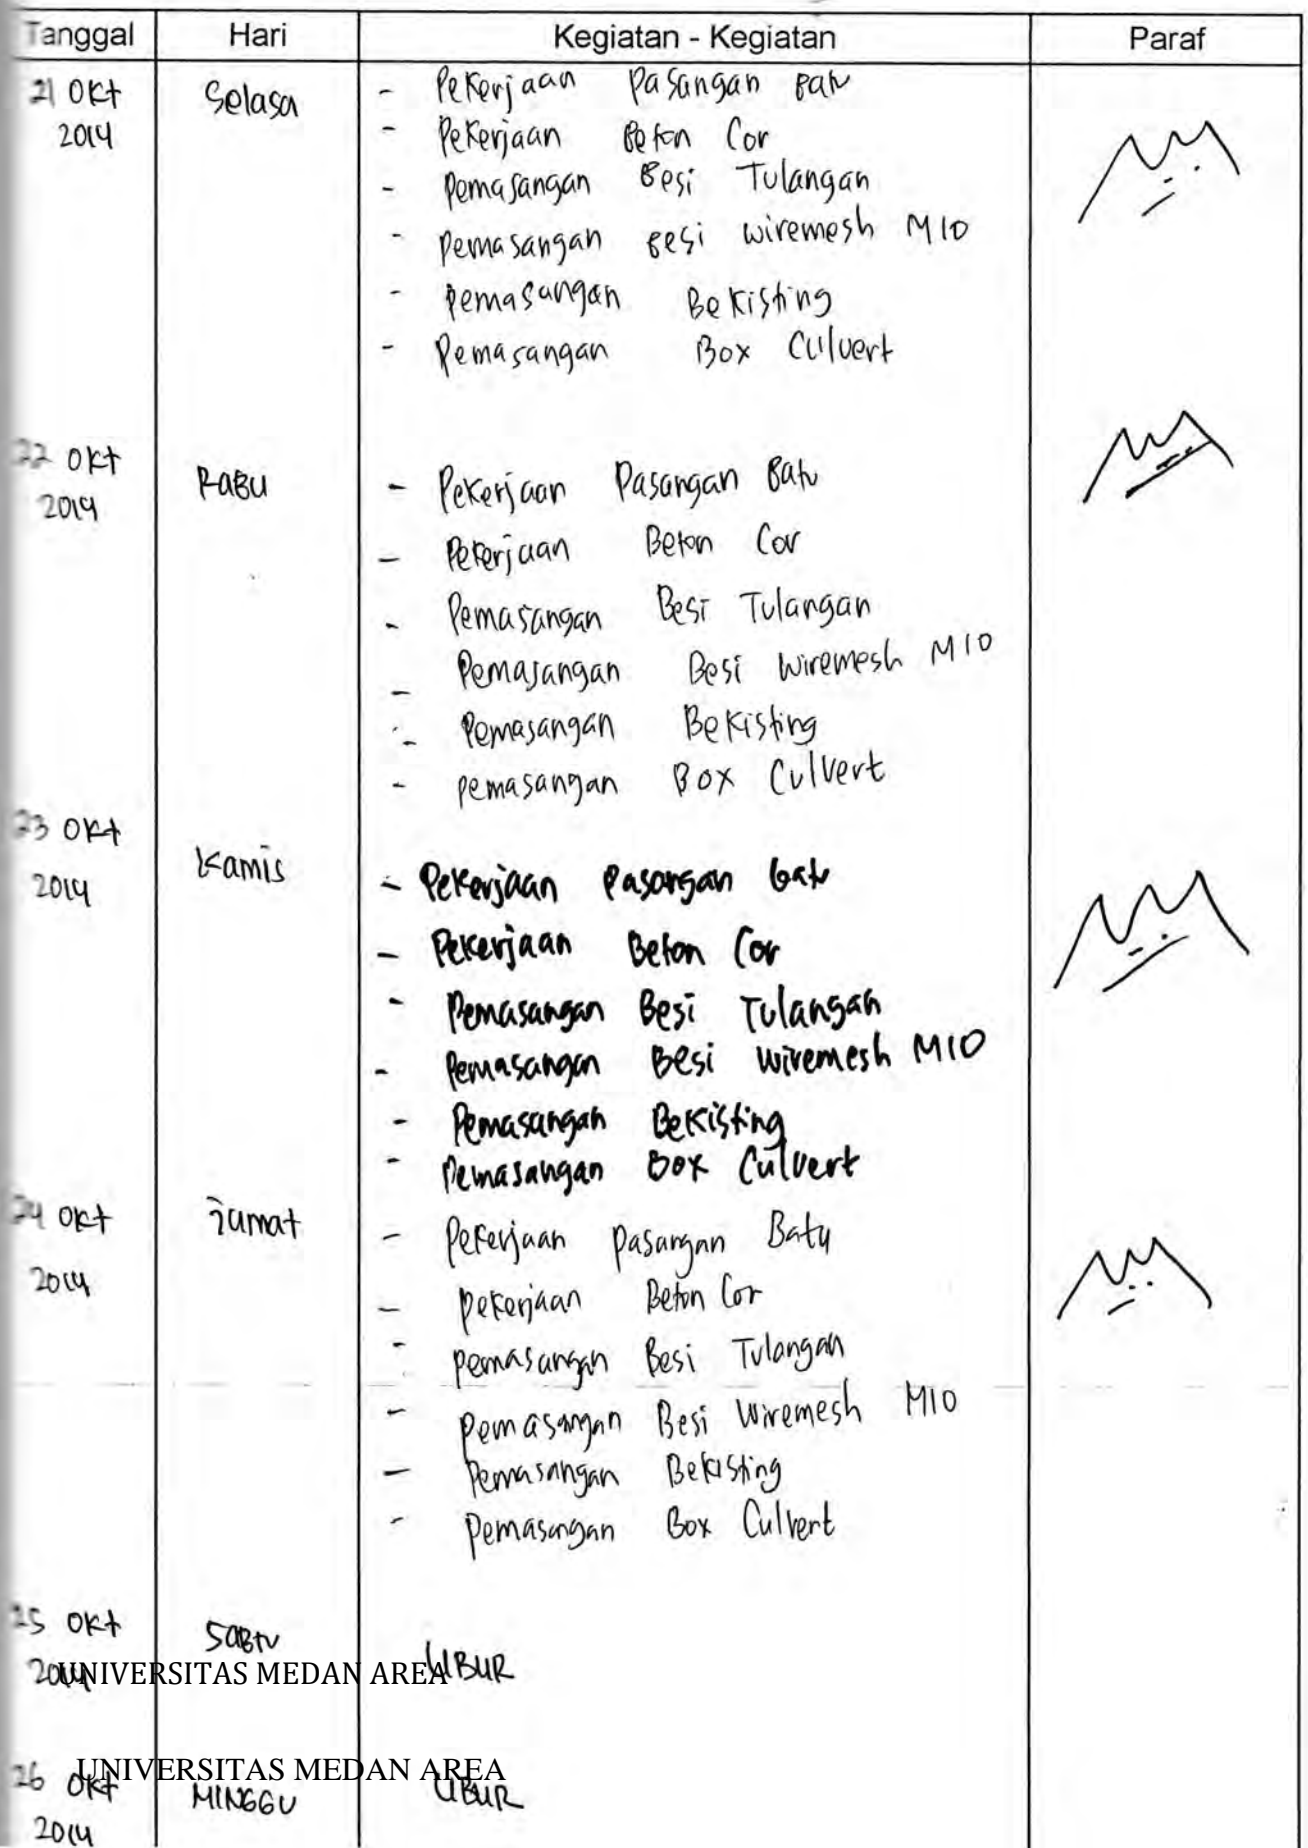 Tanggal Hari Kegiatan - Kegiatan Paraf
21 Okt Selasa - Pekerjaan Pasangan Batu
2014 - Pekerjaan Beton Cor
- Pemasangan Besi Tulangan
- Pemasangan Besi wiremesh M10
- Pemasangan Bekisting
- Pemasangan Box Culvert
22 Okt
2014 RABU - Pekerjaan Pasangan Batu
- Pekerjaan Beton Cor
- Pemasangan Besi Tulangan
- Pemasangan Besi Wiremesh M10
- Pemasangan Bekisting
- pemasangan Box Culvert
23 Okt
2014 Kamis - Pekerjaan Pasangan batu
- Pekerjaan Beton Cor
- Pemasangan Besi Tulangan
- Pemasangan Besi wiremesh M10
- Pemasangan Bekisting
- Pemasangan Box Culvert
24 Okt Jumat - Pekerjaan Pasangan Batu
2014 - pekerjaan Beton Cor
- pemasangan Besi Tulangan
- pemasangan Besi Wiremesh M10
- Pemasangan Bekisting
- Pemasangan Box Culvert
25 Okt SABTU LIBUR
2014
UNIVERSITAS MEDAN AREA
26 Okt MINGGU LIBUR
2014
UNIVERSITAS MEDAN AREA